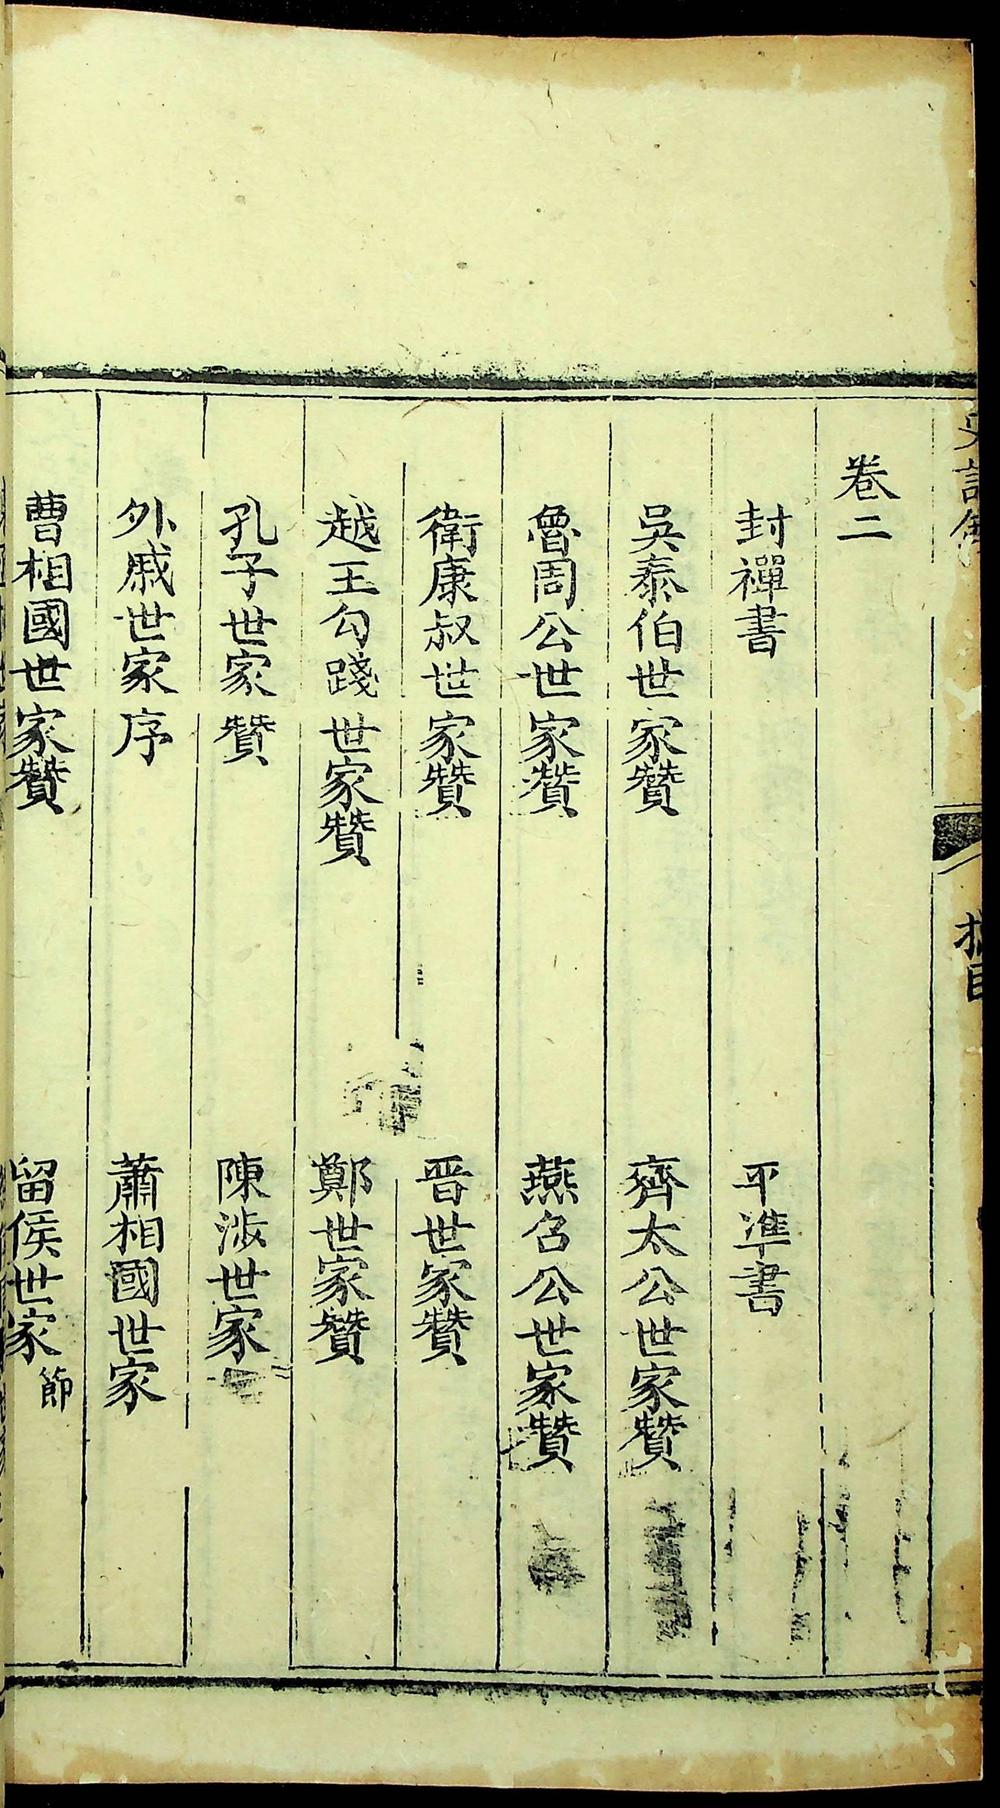 卷二
封禪書　平準書
吳泰伯世家贊　齊太公世家贊
魯周公世家贊　燕召公世家贊
衛康叔世家贊　晉世家贊
越王勾踐世家贊　鄭世家贊
孔子世家贊　陳涉世家
外戚世家序　蕭相國世家
曹相國世家贊　留侯世家節